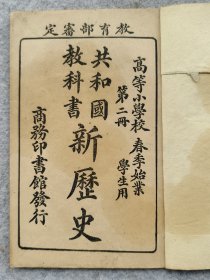 教育部審定
高等小學校 春季始業
第二冊 學生用
共和國
教科書
新歷史
商務印書館發行